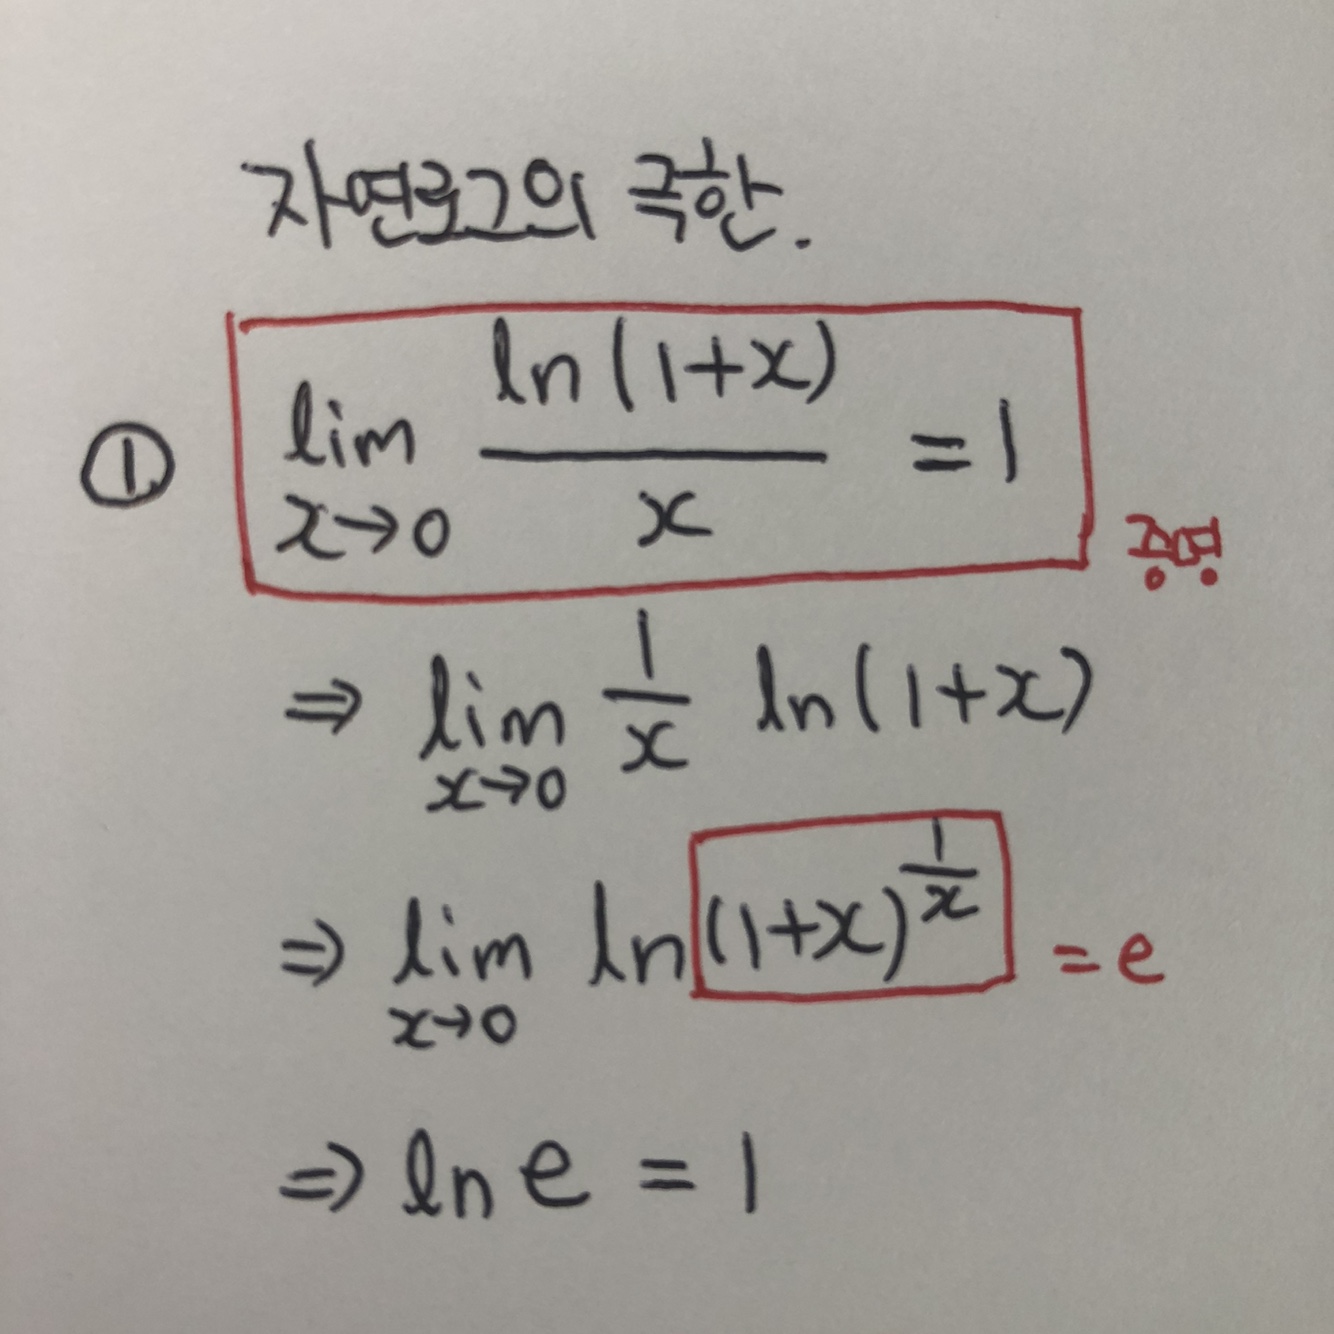 자연로그의 극한.
① lim x→0 ln(1+x) / x = 1
증명
⇒ lim x→0 1/x ln(1+x)
⇒ lim x→0 ln(1+x)^(1/x) = e
⇒ ln e = 1